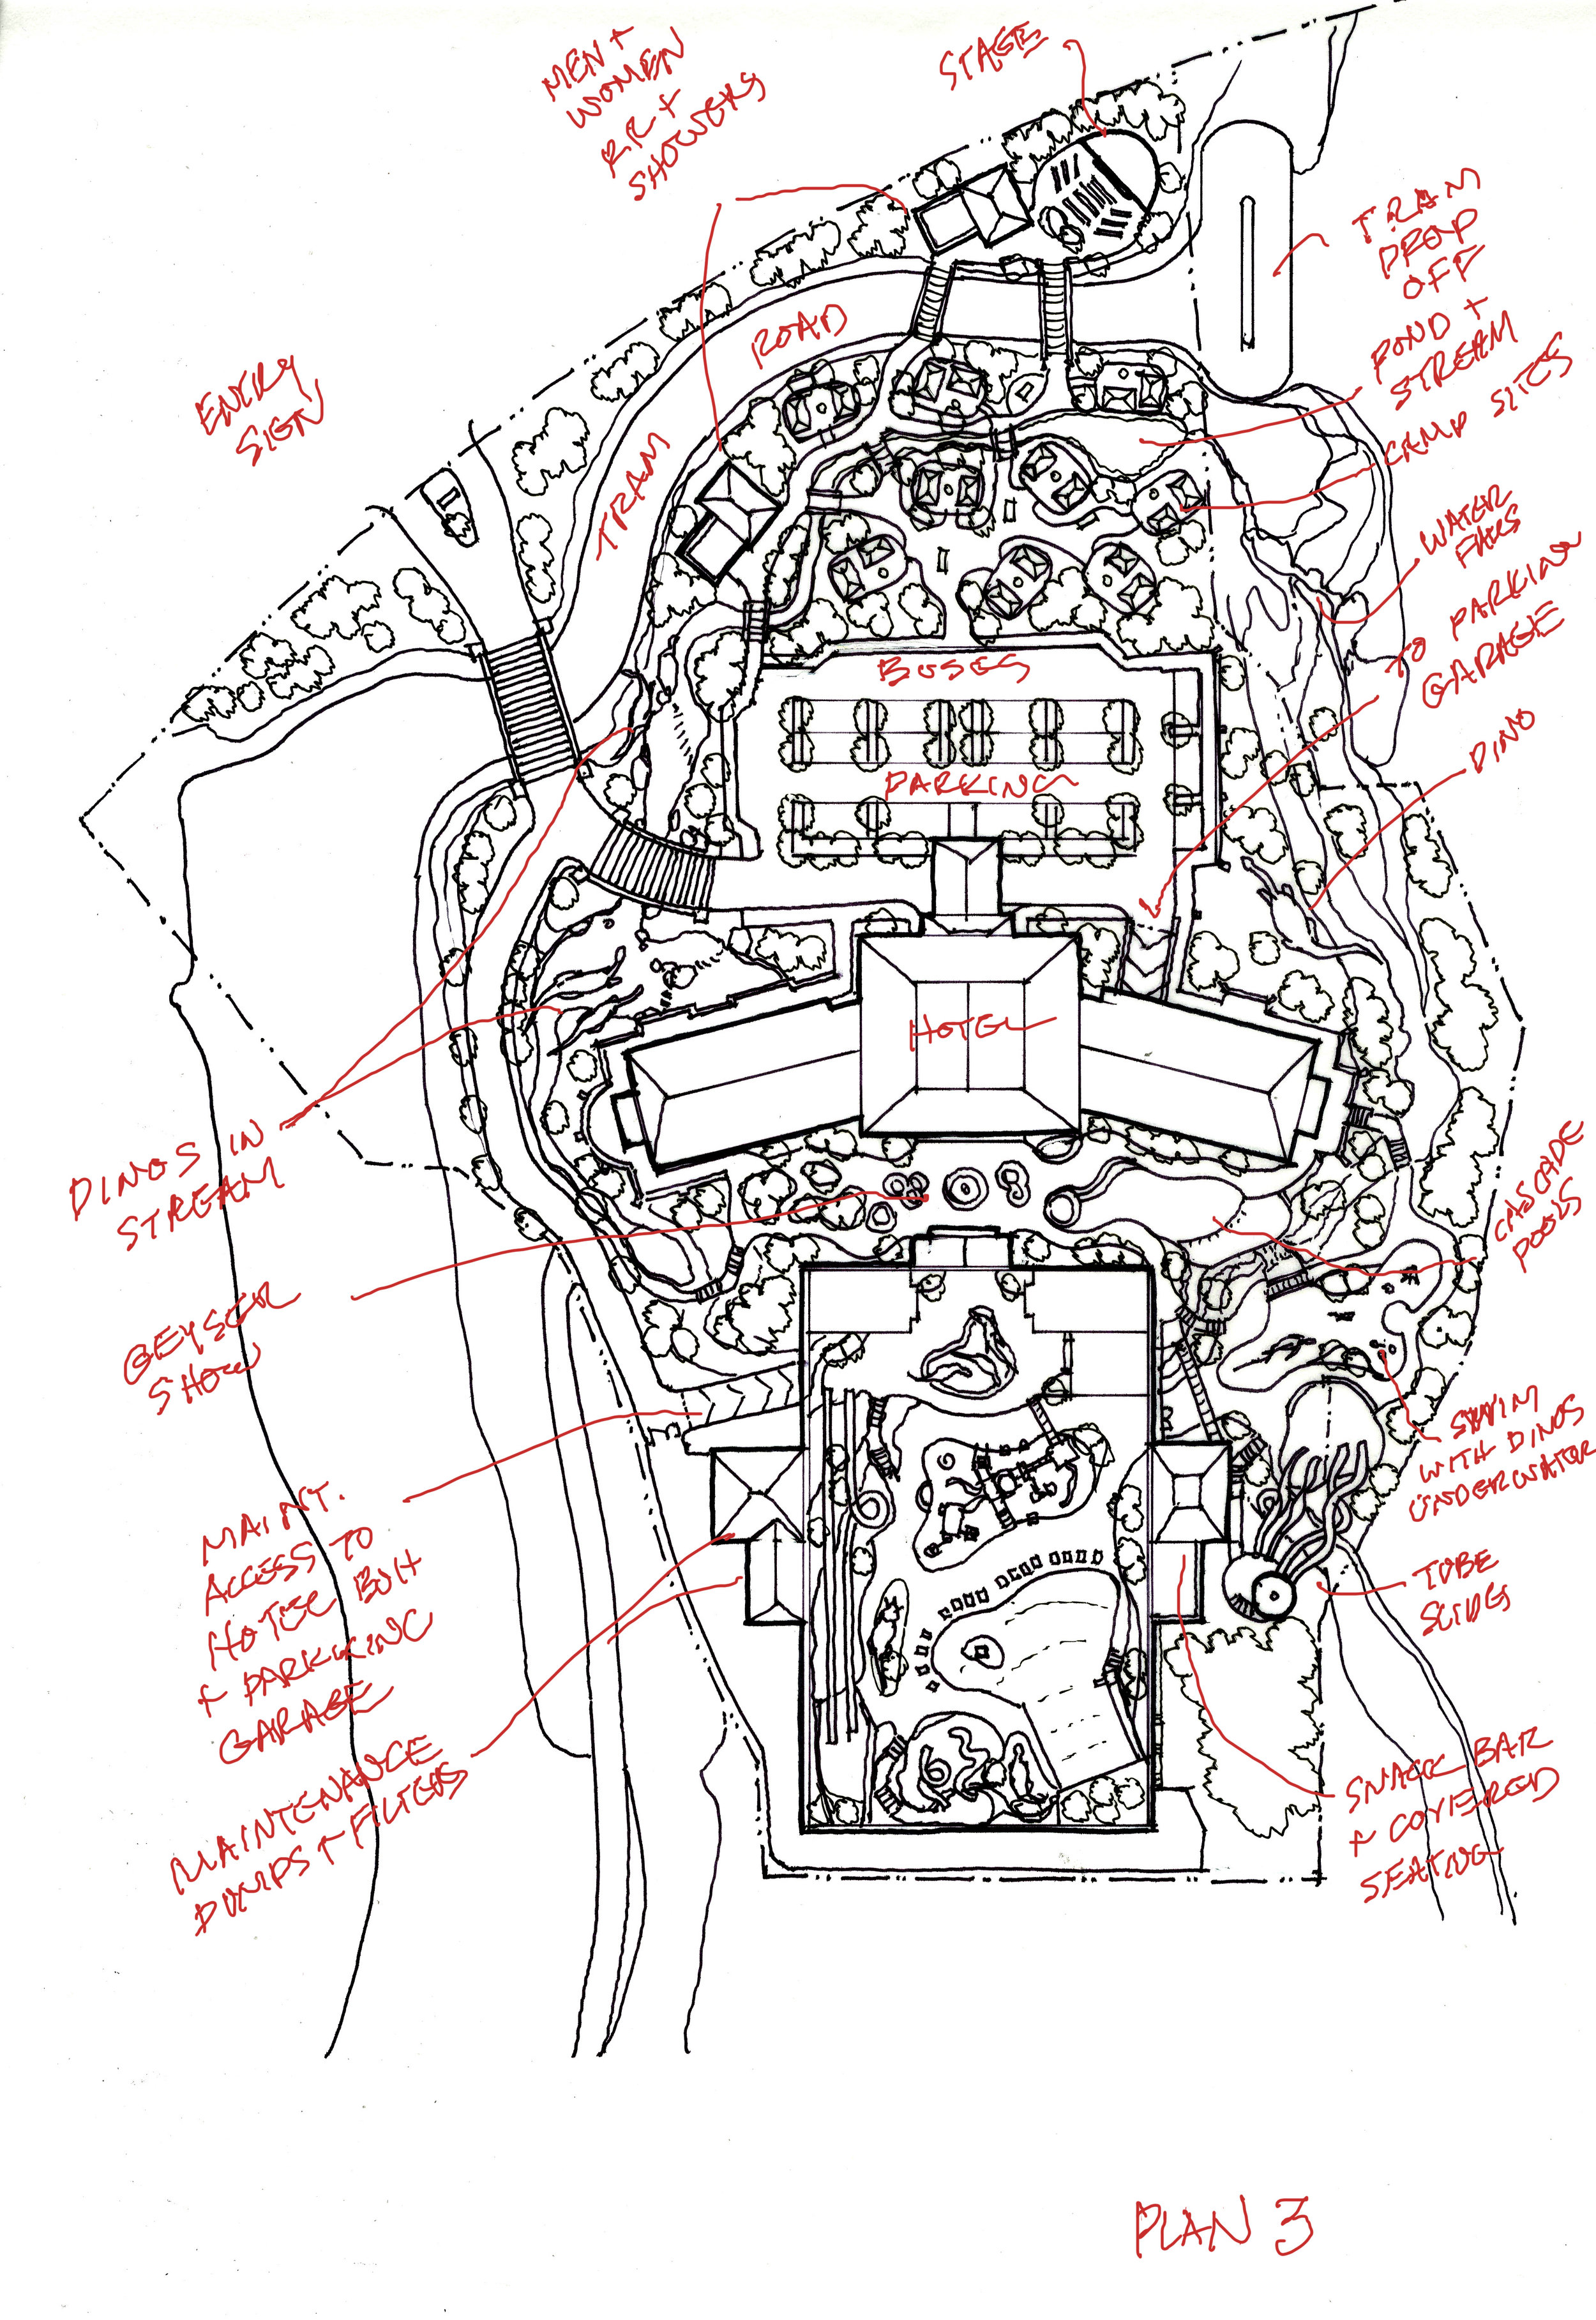 MEN +
WOMEN
R.R +
SHOWERS
STAGE
TRAM
DROP
OFF
POND +
STREAM
CAMP SITES
WATER
FALLS
TO PARKING
GARAGE
DINO
ENTRY
SIGN
TRAM
ROAD
BUSES
PARKING
HOTEL
DINOS IN
STREAM
GEYSER
SHOW
MAINT.
ACCESS TO
HOTEL BOH
+ PARKKING
GARAGE
MAINTENANCE
PUMPS + FILTERS
CASCADE
POOLS
SWIM
WITH DINOS
UNDERWATER
TUBE
SLIDES
SNACK BAR
+ COVERED
SEATING
PLAN 3